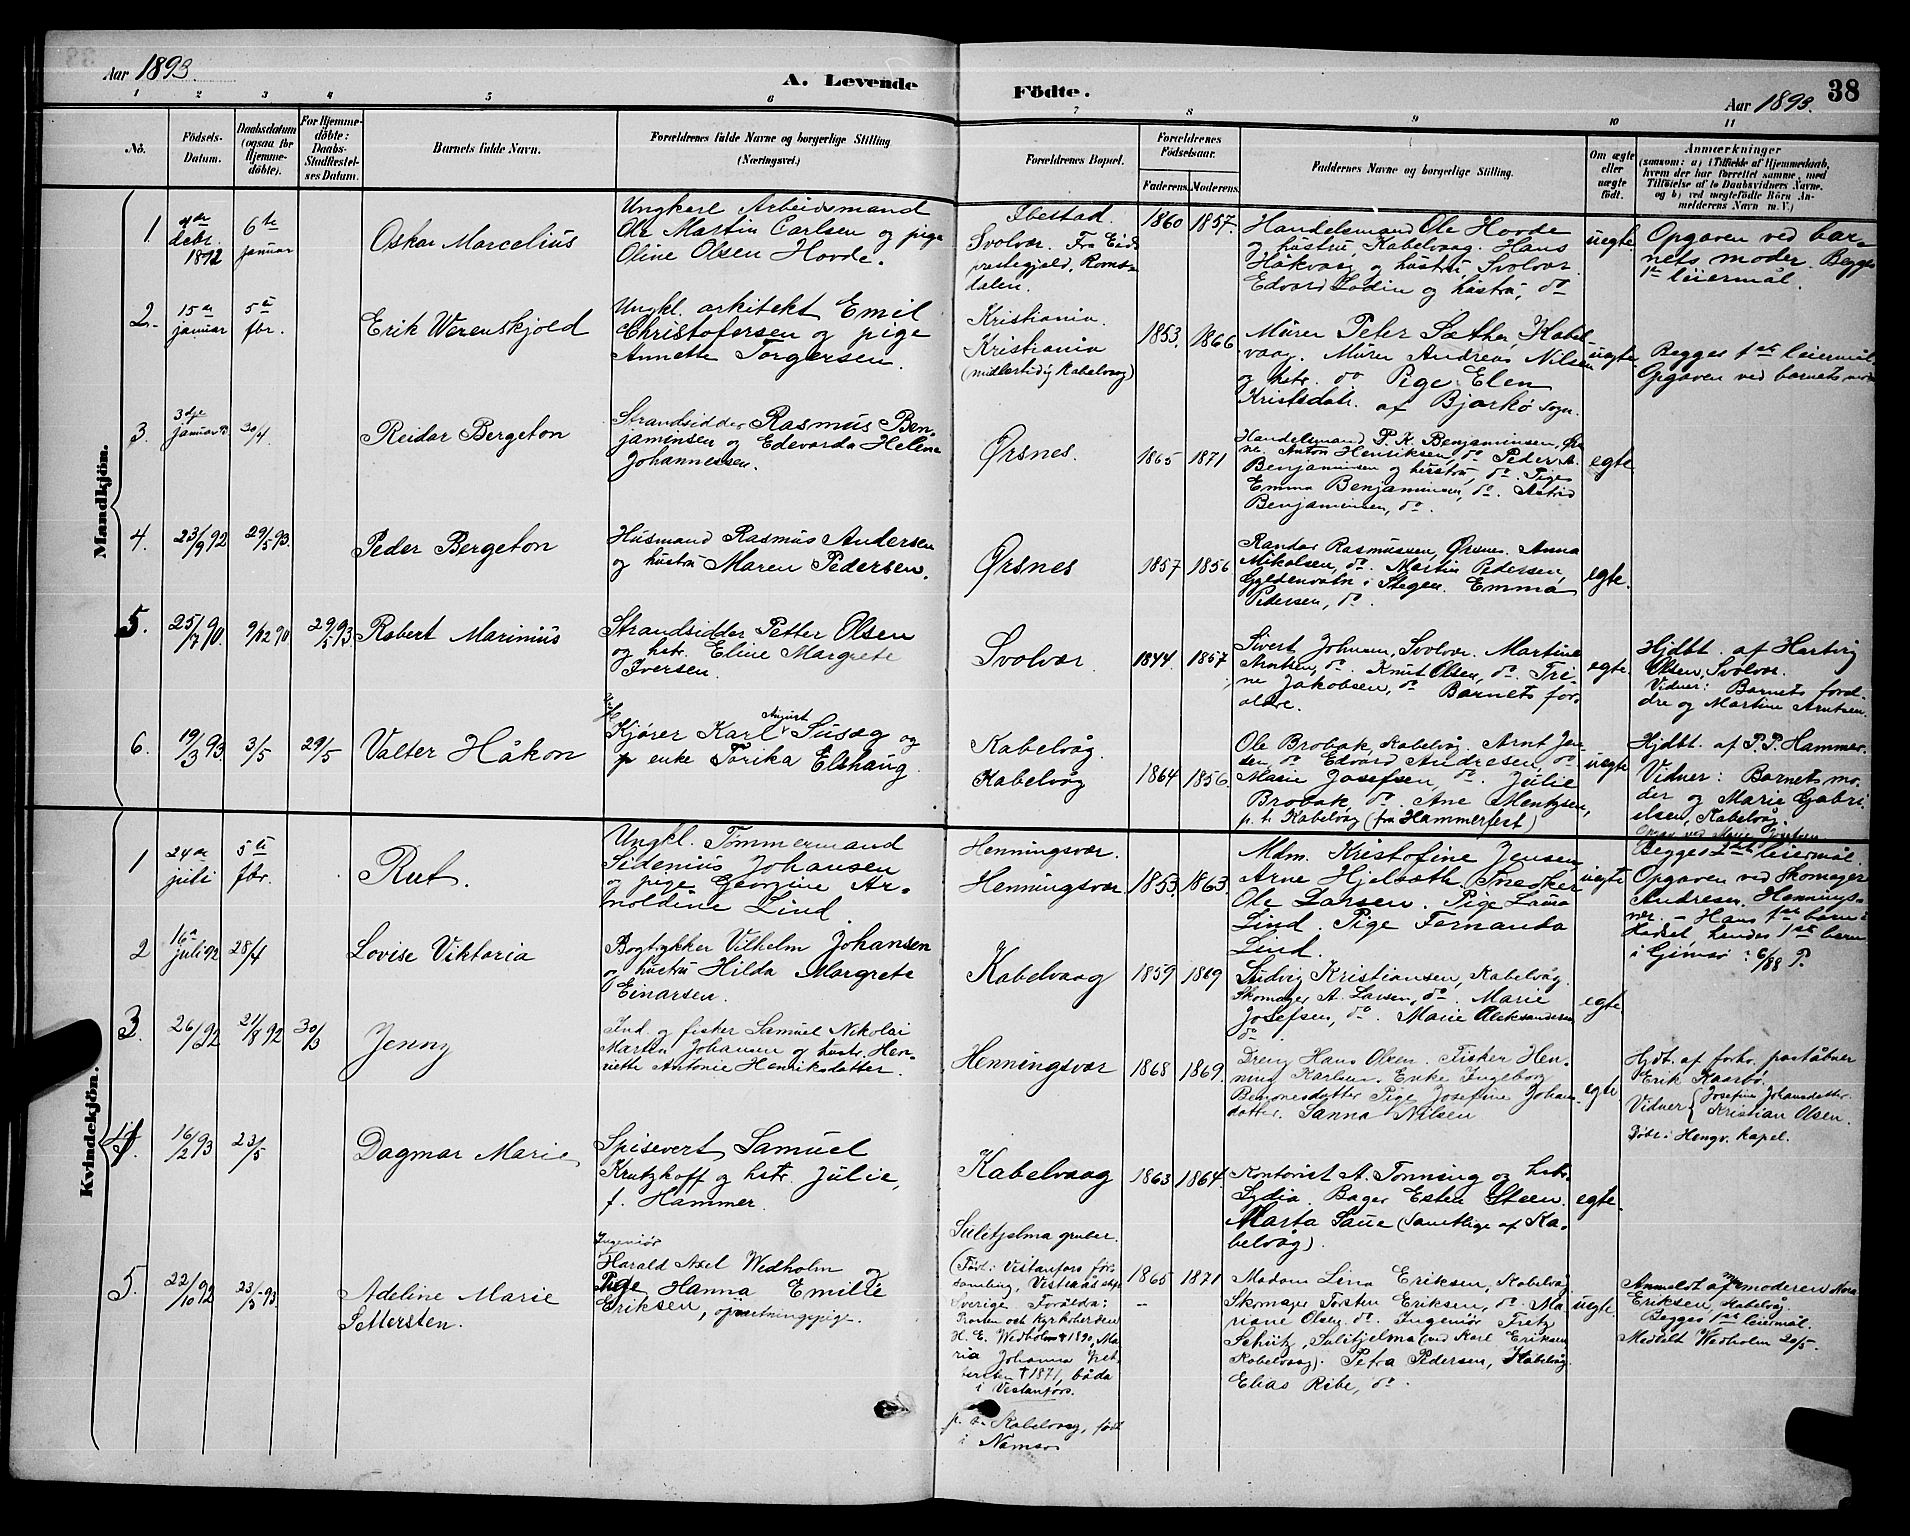 Aar 1893.
A. Levende
Födte.
38
Aar 1893.
1 2 3 4 5 6 7 8 9 10 11
No.
Födsels-
Datum.
Daabsdatum
(ogsaa for
Hjemme-
döbte).
For Hjemme-
döbte:
Daabs-
Stadfæstel-
ses Datum.
Barnets fulde Navn.
Forældrenes fulde Navne og borgerlige Stilling
(Næringsvei.)
Forældrenes Bopæl.
Forældrenes
Födselsaar.
Faderens.
Moderens.
Faddernes Navne og borgerlige Stilling.
Om ægte
eller
uægte
födt.
Anmærkninger
(saasom: a) i Tilfælde af Hjemmedaab,
hvem der har forrettet samme, med
Tilföielse af to Daabsvidners Navne,
og b) ved uægtefödte Börn An-
melderens Navn m. V.)
Mandkjön.
1.
debr.
1892
6te
januar
Oskar Marcelius
Ungkarl Arbeidsmand
Ole Martin Carlsen og pige
Oline Olsen Hovde.
Ibestad.
Svolvær. Fra Eids
prestegjeld, Roms-
dalen.
1860
1857.
Handelsmand Ole Hovde
og hustru, Kabelvaag. Hans
Håkvåg og hustru, Svolvær.
Edvard Lodin og hustru, do
uegte.
Opgaven ved bar-
nets moder. Begges
1ste leiermål.
2.
15de
januar
5te
fbr.
Erik Werenskjold
Ungkl. arkitekt Emil
Christofersen og pige
Annette Torgersen.
Kristiania.
Kristiania
(midlertidig Kabelvåg)
1853.
1866
Murer Peter Sæther, Kabel-
vaag. Murer Andreas Nilsen
og hstr. do Pige Elen
Kristsdatr. af Bjarkö sogn.
uegte.
Begges 1ste leiermål
Opgaven ved barnets
3.
3dje
januar
30/4
Reidar Bergeton
Strandsidder Rasmus Ben-
jaminsen og Edevarda Helene
Johannessen.
Ørsnes.
1865
1871
Handelsmand P. K. Benjaminsen, Ørs-
nes. Anton Henriksen, do. Peder A.
Benjaminsen og hustru, do. Pige
Emma Benjaminsen, do. Astrid
Benjaminsen, do.
egte
4.
23/9 92
29/5 93.
Peder Bergeton
Husmand Rasmus Andersen
og hustru Maren Pedersen.
Ørsnes
1857
1856
Randar Rasmussen, Ørsnes. Anna
Mikalsen, do. Martin Pedersen,
Gyldenvatn i Stegen. Emma
Pedersen, do.
egte.
5.
25/7 90.
9/12 90
29/5 93
Robert Marinius
Strandsidder Petter Olsen
og hstr. Eline Margrete
Iversen.
Svolvær.
1844.
1857
Sivert Johnsen, Svolvær. Martine
Arntsen, do. Knut Olsen, do. Tri-
ne Jakobsen, do Barnets for-
ældre.
egte.
Hjdbt. af Hartvig
Olsen, Svolvær.
Vidner: Barnets foræl-
dre og Martine Arntsen.
6.
19/3 93.
3/5
29/5
Valter Håkon
Kjører Karl August Susæg og
enke Tarika Elshaug.
Kabelvåg.
Kabelvåg
1864
1856.
Ole Brobak, Kabelvåg. Arnt Jen-
sen, do Edvard Andresen do
Marie Josefsen, do. Julie
Brobak, do. Ane Mentzsen,
p. t. Kabelvåg (fra Hammerfest)
uegte
Hjdbt. af P. P. Hammer.
Vidner: Barnets mo-
der og Marie Gabri-
elsen, Kabelvåg.
Kvindekjön.
1
24de
juli
5te
fbr.
Rut.
Ungkl. Tømmermand
Sidenius Johansen
og pige Georgine Ar-
noldine Lind.
Henningsvær.
Henningsvær
1853.
1863.
Mdm. Kristofine Jensen
Arne Hjelvæth Snedker
Ole Larsen. Pige Laura
Lind. Pige Fernanda
Lind.
uegte
Begges 2det leiermål.
Opgaven ved skomager
Andresen, Hennings-
vær. - Hans 1ste barn i
Hadsel hendes 1ste barn
i Gimsø 6/88 P.
2
16de
juli 92
28/4
Lovise Viktoria
Bogtrykker Vilhelm Johansen
og hustru Hilda Margrete
Einarsen.
Kabelvaag
1859
1869
Ludvig Kristiansen, Kabelvåg.
Skomager A. Larsen, do. Marie
Josefsen, do. Marie Aleksandersen
do.
egte
3.
21/8 92
30/3
Jenny
Ind. og fisker Samuel Nikolai
Martin Johansen og hustr. Hen-
riette Antonie Henriksdatter.
Henningsvær
1868
1869.
Dreng Hans Olsen. Fisker Hen-
ning Karlsen. Enke Ingeborg
Benonesdatter Pige Josefine Johans-
datter. Sanna Nilsen
egte
Hjdt. af forhv. poståbner
Erik Kaarbø.
Vidner { Josefine Johansdatter.
Kristian Olsen.
Døbt i Hengv. kapel.
4.
16/2 93
23/5
Dagmar Marie
Spisevert Samuel
Krutzkoff og hstr Julie,
f. Hammer.
Kabelvaag
1863
1864.
Kontorist A. Tønning og hstr.
Lydia. Bager Esten Steen.
Marta Saue (samtlige af Ka-
belvåg).
egte.
5.
22/10 92
23/5 93.
Adeline Marie
Settersten.
Ingeniør
Harald Axel Wedholm og
Pige Hanna Emilie
Eriksen, opvartningspige.
Sulitjelma gruber.
(Född: Vestanfors för-
samling, Vestraas stift
Sverige. Föräldra:
Prosten och Kyrkoherden
H. E. Wedholm † 1890, Ma-
ria Johanna
† 1871, båda
i Vestanfors.
p. t. Kabelvaag, født
i Namsos
1865
1871
-
Madam Lina Eriksen, Kabelvåg
Skomager Torsten Eriksen, do. Ma-
riane Olsen do. Ingeniør Fritz
Schütz, Sulitjelma (ved Karl Eriksen
Kabelvaag). Petra Pedersen, Kabelvåg.
Elias Ribe, do.
uegte.
Anmeldt af moderen
Eriksen, Kabelvåg.
Begges 1ste leiermål.
Medelt Wedholm 20/5.